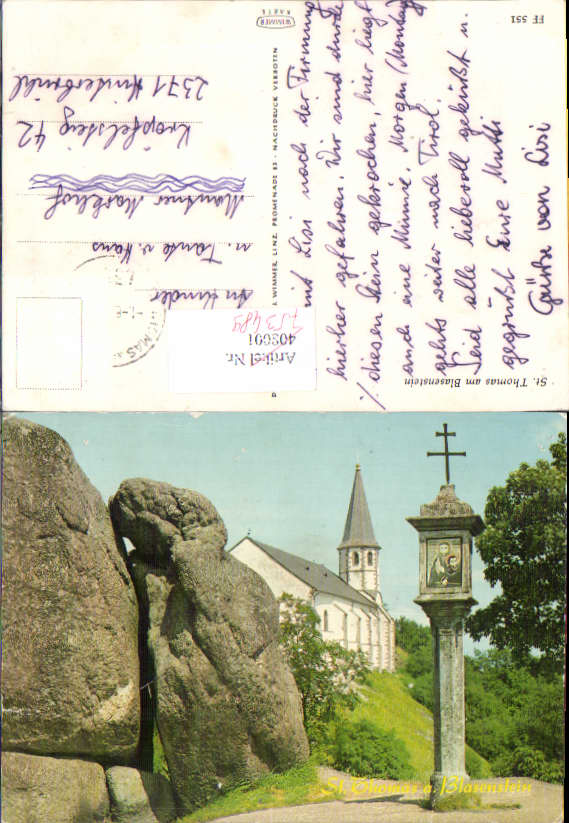 St. Thomas am Blasenstein
mit Lisi nach der Firmung
hierher gefahren. Wir sind durch
diesen Stein gekrochen, hier liegt
auch eine Mumie. Morgen (Montag
gehts weiter nach Tirol.
Seid alle liebevoll geküßt u.
gegrüßt Eure Mutti
Grüße von Lisi
FF 551
WIMMER
KARTE
WIMMER, LINZ, PROMENADE 23 · NACHDRUCK VERBOTEN
An Kinder
u. Tante u. Hans
Kröpfelsteig 42
2371 Hinterbrühl
Artikel Nr.
403601
St. Thomas a. Blasenstein